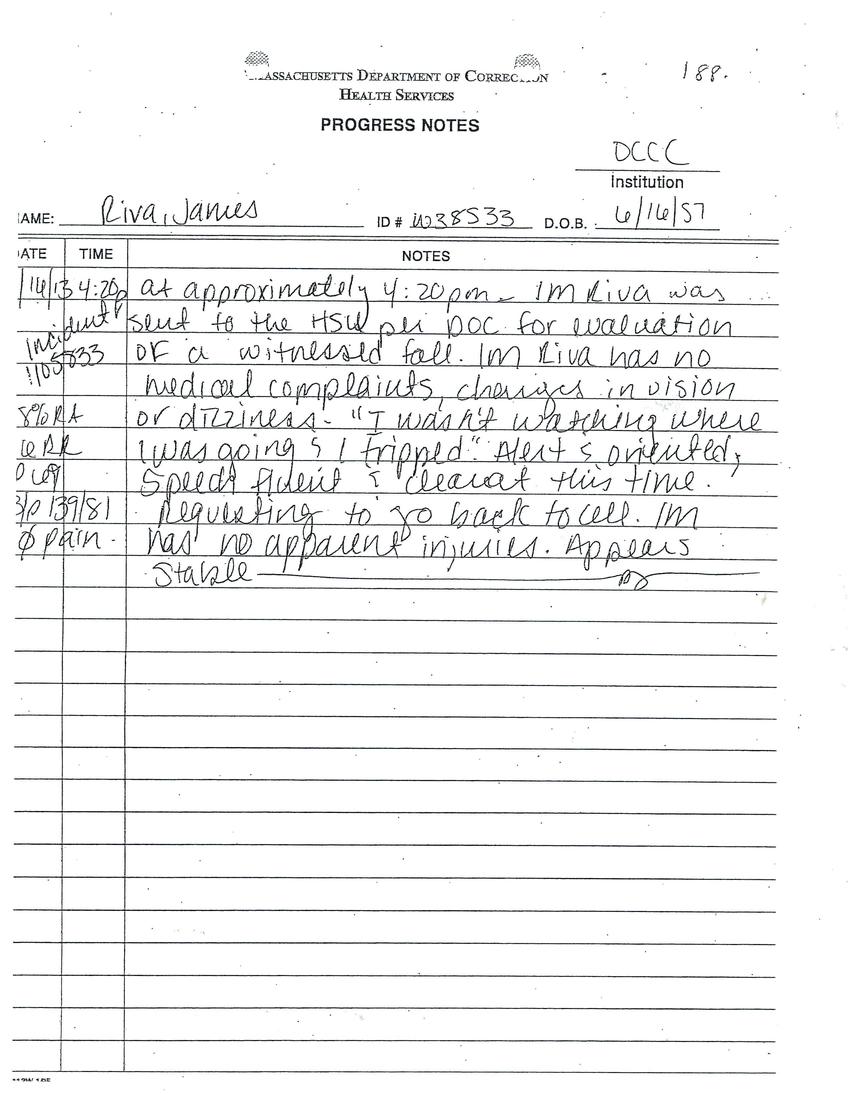 188.
MASSACHUSETTS DEPARTMENT OF CORRECTION
HEALTH SERVICES
PROGRESS NOTES
DCCC
Institution
AME: Riva, James ID # W38533 D.O.B. 6/16/57
ATE TIME NOTES
/16/13 4:20p at approximately 4:20pm - IM Riva was
Incident # sent to the HSU per DOC for evaluation
1105833 of a witnessed fall. IM Riva has no
medical complaints, changes in vision
8% RA or dizziness. "I wasn't watching where
RR I was going & I tripped." Alert & oriented,
Speech fluent & clear at this time.
139/81 Requesting to go back to cell. IM
Ø pain. has no apparent injuries. Appears
Stable